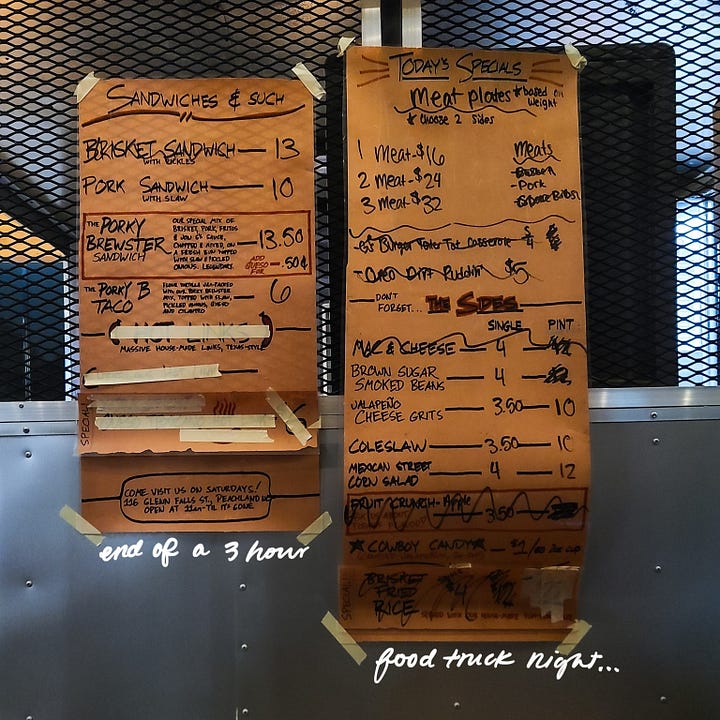 SANDWICHES & SUCH
BRISKET SANDWICH — 13
WITH PICKLES
PORK SANDWICH — 10
WITH SLAW
THE PORKY BREWSTER SANDWICH
OUR SPECIAL MIX OF
BRISKET, PORK, FRITOS
& SAUCE,
CHOPPED & MIXED, ON
A FRESH BUN TOPPED
WITH SLAW & PICKLED
ONIONS. LEGENDARY.
13.50
ADD QUESO FOR .50¢
THE PORKY B TACO
FLOUR TORTILLA
MIX, TOPPED WITH SLAW,
PICKLED ONIONS, QUESO
AND CILANTRO
6
HOT LINKS
MASSIVE HOUSE-MADE LINKS, TEXAS-STYLE
SPECIAL
6
COME VISIT US ON SATURDAYS!
116 GLENN FALLS ST., PEACHLAND
OPEN AT 11am-'TIL IT'S GONE
end of a 3 hour
TODAY'S SPECIALS
Meat plates *based on weight
* Choose 2 sides
1 Meat-$16
2 Meat-$24
3 Meat-$32
Meats
-Pork
Burger Tater Tot Casserole
Puddin $5
DON'T FORGET... THE SIDES
SINGLE PINT
MAC & CHEESE — 4
BROWN SUGAR SMOKED BEANS — 4
JALAPEÑO CHEESE GRITS — 3.50 — 10
COLESLAW — 3.50 — 10
MEXICAN STREET CORN SALAD — 4 — 12
FRUIT CRUNCH-Apple
3.50
COWBOY CANDY — $1/
SPECIAL
BRISKET FRIED RICE
food truck night...